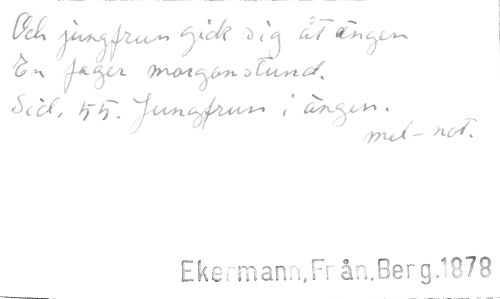 Och jungfrun gick sig åt ängen
En fager morgonstund.
Sid. 55. Jungfrun i ängen.
mel-not.
Ekermann, Från. Berg. 1878